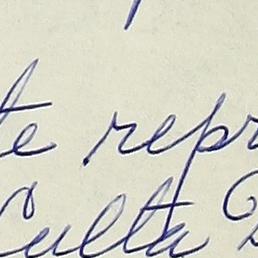 te repr
Culta